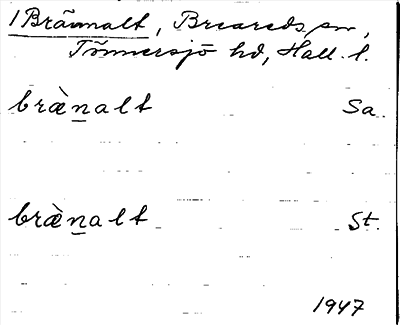 1 Brännalt, Breareds sn,
Tönnersjö hd, Hall. l.
bræ̀n̲alt Sa.
bræ̀n̲alt St.
1947